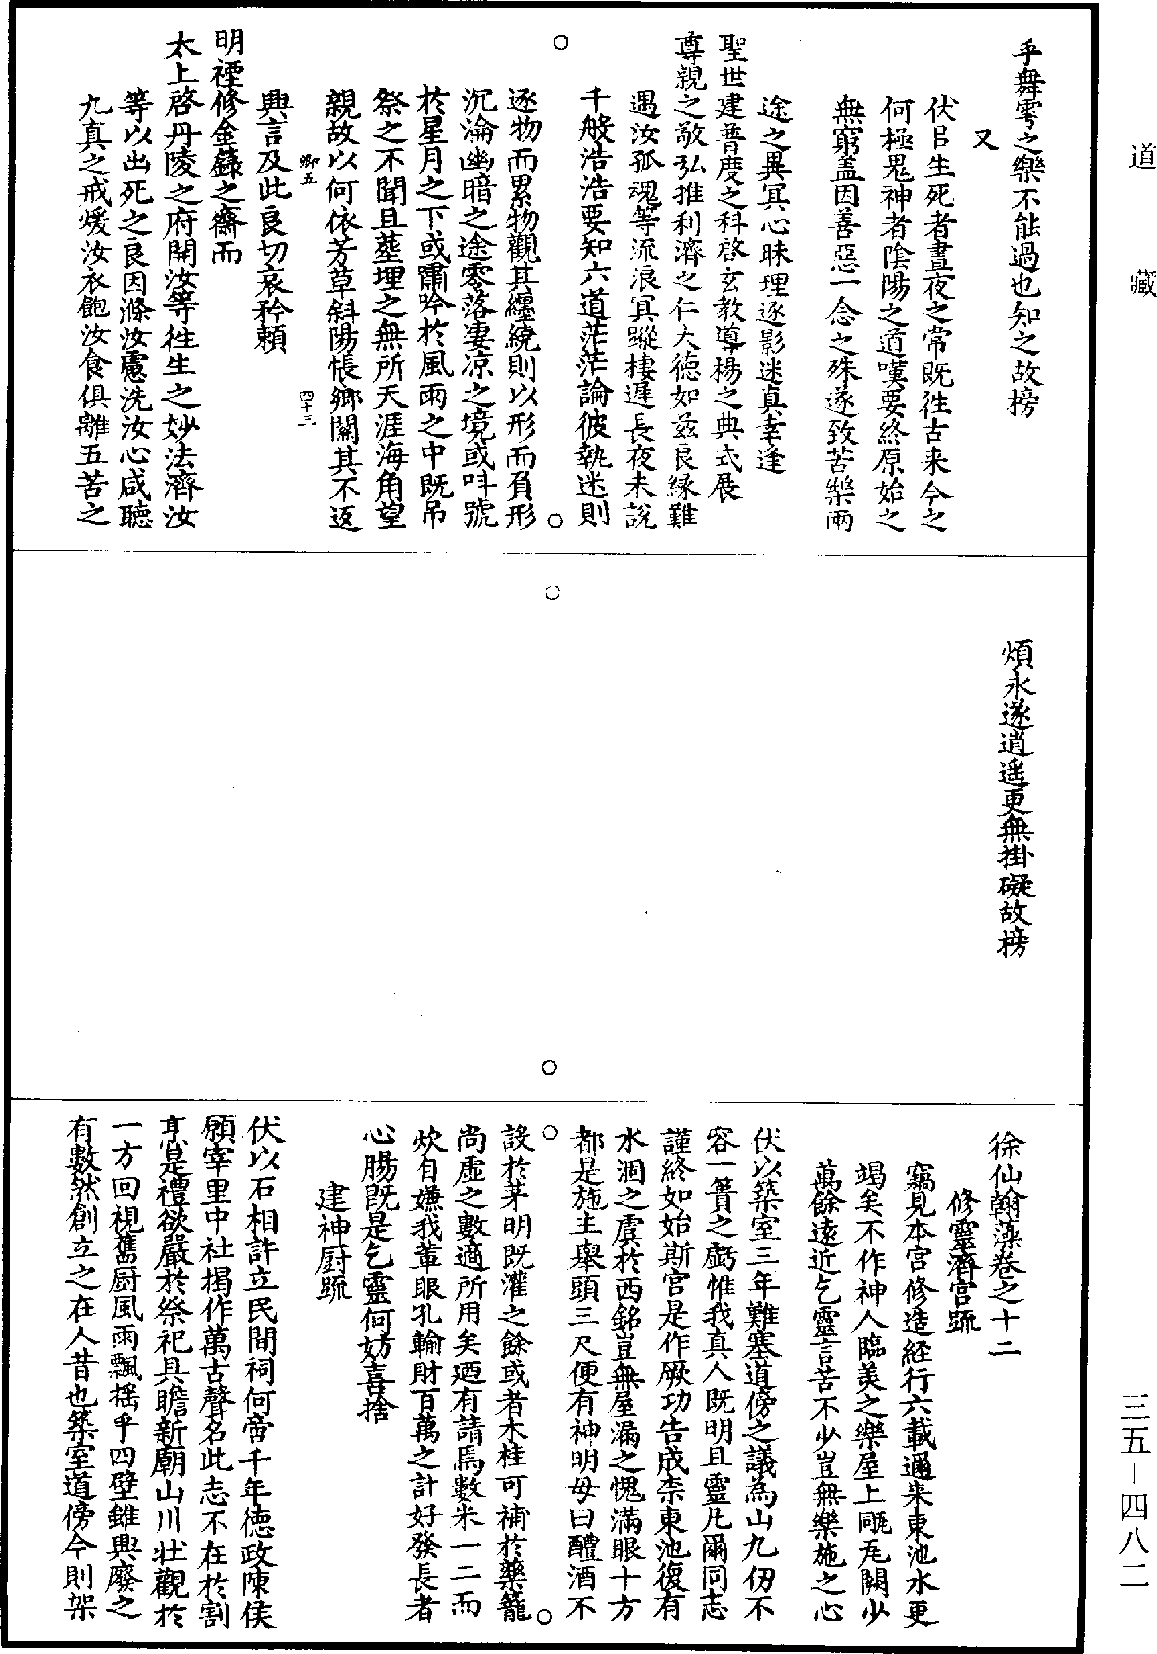 道藏
乎舞雩之樂不能過也知之故榜
又
伏㠯生死者晝夜之常既徃古来今之
何極鬼神者陰陽之適嘆要終原始之
無窮盖因善惡一念之殊遂致苦樂兩
途之異冥心昧理逐影迷真幸逢
聖世建普度之科啓玄教導楊之典式展
尊親之敬弘推利濟之仁大德如茲良緣難
遇汝孤魂等流浪冥蹤棲遲長夜未說
千般浩浩要知六道茫茫論彼執迷則
逐物而累物觀其纏繞則以形而負形
沉淪幽暗之途零落凄凉之境或呌號
於星月之下或肅吟於風雨之中既吊
祭之不聞且塟埋之無所天涯海角望
親故以何依芳草斜陽悵鄉關其不返
鄉五
四十三
興言及此良切哀矜頼
明禋修金籙之齋而
太上啓丹陵之府開汝等徃生之妙法濟汝
等以出死之良因滌汝慮洗汝心咸聽
九真之戒煖汝衣飽汝食俱離五苦之
煩永遂逍遥更無掛礙故榜
徐仙翰藻卷之十二
修靈濟宫䟽
竊見本宫修造経行六載邇来東池水更
竭矣不作神人臨美之樂屋上甋瓦闕少
萬餘遠近乞靈言苦不少豈無樂施之心
伏以築室三年難塞道傍之議為山九仭不
容一簣之虧惟我真人既明且靈凡爾同志
謹終如始斯宫是作厥功告成柰東池復有
水涸之虞於西銘豈無屋漏之愧滿眼十方
都是施主舉頭三尺便有神明毋曰醴酒不
設於茅明既灌之餘或者木桂可補於藥籠
尚虛之數適所用矣廼有請焉數米一二而
炊自嫌我輩眼孔輸財百萬之計好發長者
心腸既是乞靈何妨喜捨
建神厨䟽
伏以石相許立民間祠何啻千年德政陳侯
願宰里中社揭作萬古聲名此志不在於割
烹是禮欲嚴於祭祀具瞻新廟山川壯觀於
一方回視舊厨風雨飄揺乎四壁雖興廢之
有數然創立之在人昔也築室道傍今則架
三五－四八二